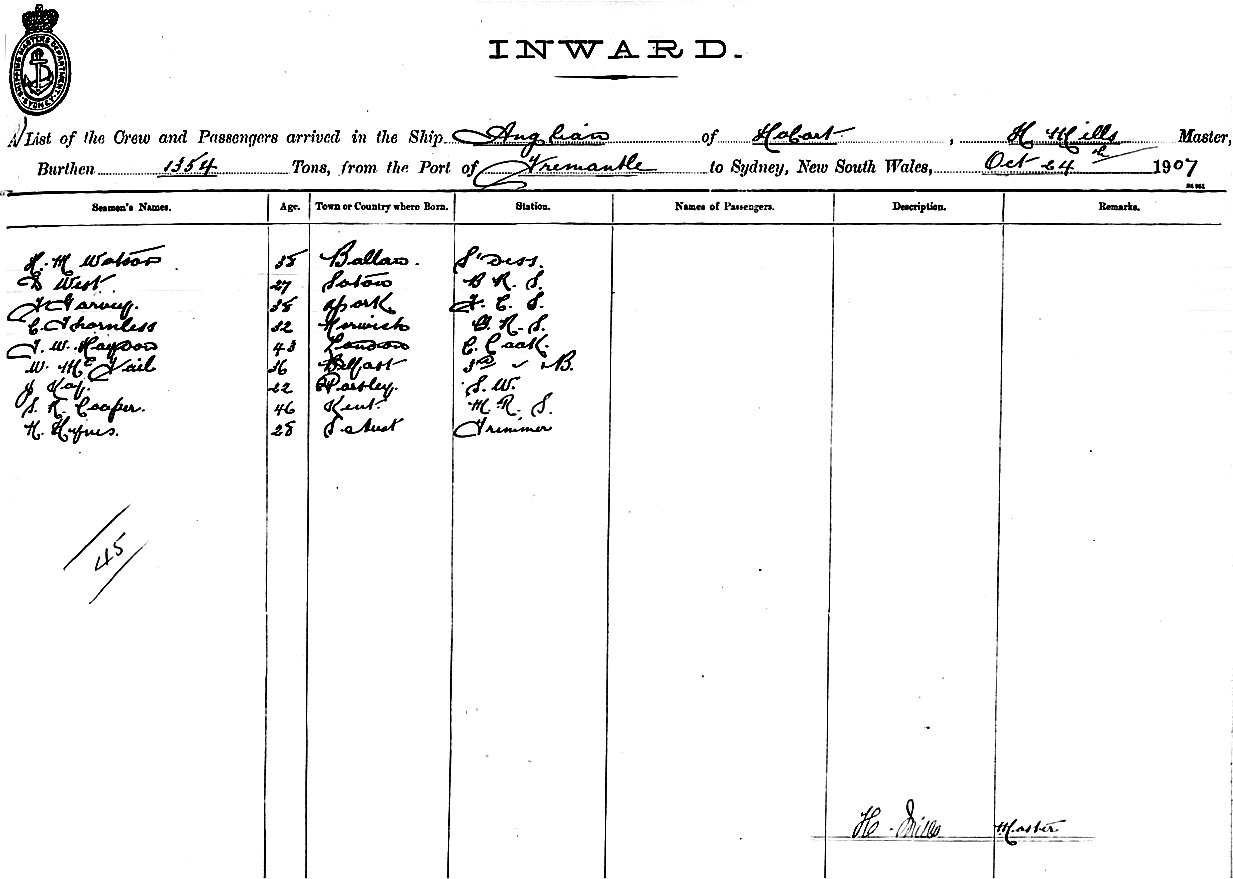 SHIPPING MASTERS DEPARTMENT SYDNEY
INWARD.
A List of the Crew and Passengers arrived in the Ship Anglian of Hobart, H Mills Master,
Burthen 1354 Tons, from the Port of Fremantle to Sydney, New South Wales, Oct 24th 1907
Seamen's Names. Age. Town or Country where Born. Station. Names of Passengers. Description. Remarks.
H. M Watson Ballan.
West. 27 B R S.
Garvey. York F. C. S.
C. Thornless 32 Norwich
J. W. Haydon 43 London C. Cook.
W. Mc Vail Belfast
J Kay. 22 Paisley. S. W.
S. R. Cooper. 46 Kent. M. R. S.
H. Hynes. 28 S. Aust Trimmer
45
H. Mills Master